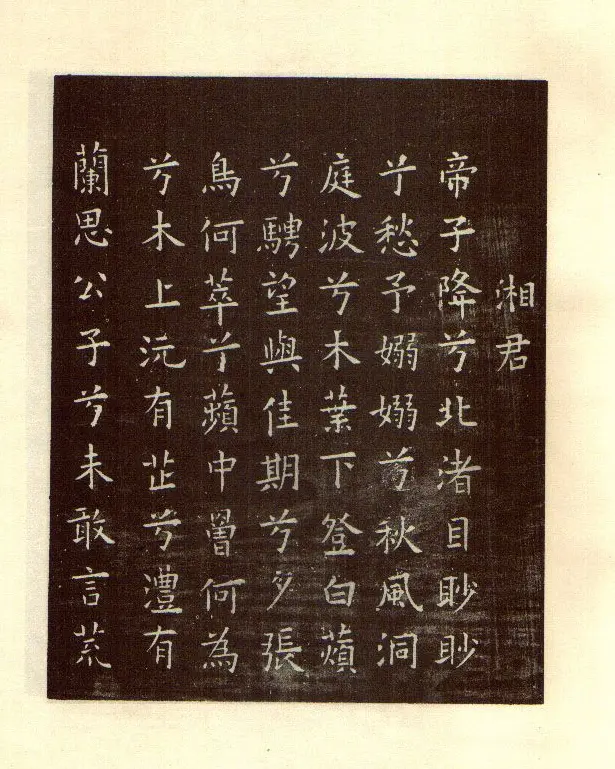 湘君
帝子降兮北渚目眇眇
兮愁予嫋嫋兮秋風洞
庭波兮木葉下登白薠
兮騁望與佳期兮夕張
鳥何萃兮蘋中罾何為
兮木上沅有芷兮澧有
蘭思公子兮未敢言荒